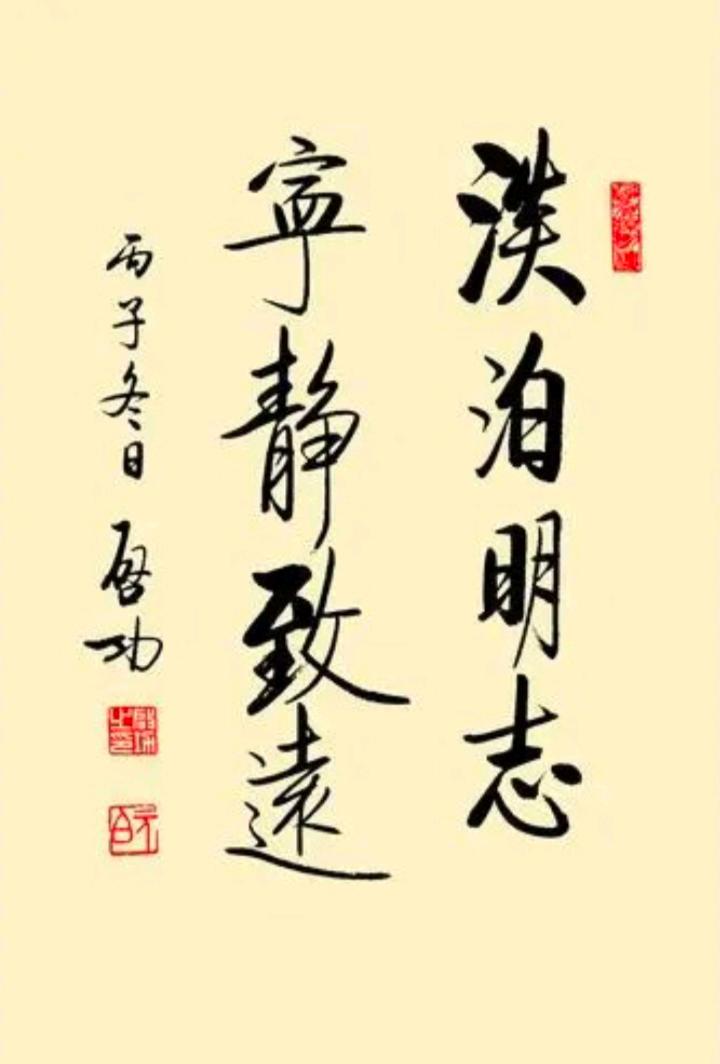 淡泊明志
寧静致遠
丙子冬日 啓功